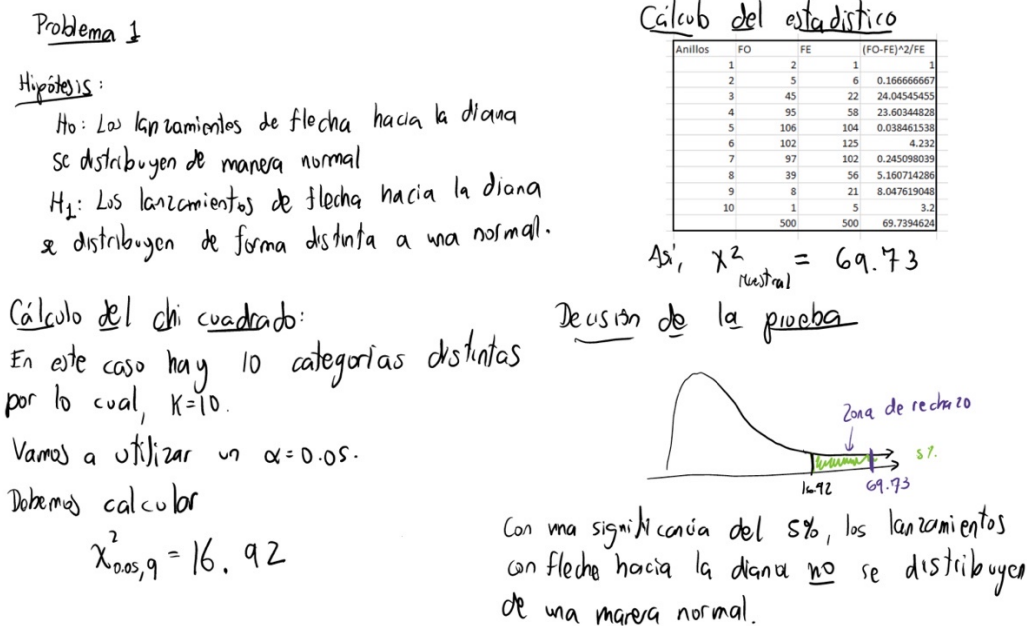 Problema 1
Hipótesis:
Ho: Los lanzamientos de flecha hacia la diana
se distribuyen de manera normal
H1: Los lanzamientos de flecha hacia la diana
se distribuyen de forma distinta a una normal.
Cálculo del chi cuadrado:
En este caso hay 10 categorías distintas
por lo cual, K=10.
Vamos a utilizar un α=0.05.
Debemos calcular
χ²0.05,9 = 16.92
Cálculo del estadístico
Anillos FO FE (FO-FE)^2/FE
1 2 1 1
2 5 6 0.166666667
3 45 22 24.04545455
4 95 58 23.60344828
5 106 104 0.038461538
6 102 125 4.232
7 97 102 0.245098039
8 39 56 5.160714286
9 8 21 8.047619048
10 1 5 3.2
500 500 69.7394624
Así, χ² muestral = 69.73
Decisión de la prueba
Zona de rechazo
5%
16.92 69.73
Con una significancia del 5%, los lanzamientos
con flecha hacia la diana no se distribuyen
de una manera normal.